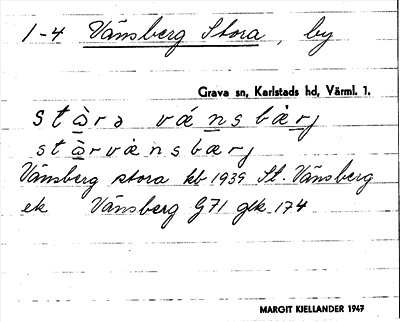 1-4 Vänsberg Stora, by
Grava sn, Karlstads hd, Värml. 1.
stòrə vánsbærj
stòrvànsbærj
Vänsberg stora kb 1939 St. Vänsberg
ek Vänsberg G71 gek 174
MARGIT KJELLANDER 1947